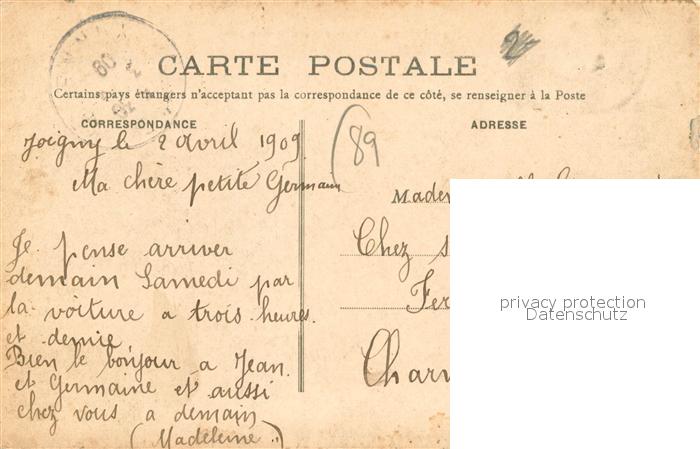 CARTE POSTALE
Certains pays étrangers n'acceptant pas la correspondance de ce côté, se renseigner à la Poste
CORRESPONDANCE
Joigny le 2 avril 1909
Ma chère petite Germain
Je pense arriver
demain Samedi par
la voiture a trois heures.
et demie
Bien le bonjour a Jean.
et Germaine et aussi
chez vous a demain
(Madeleine)
89
2
ADRESSE
Chez
privacy protection
Datenschutz